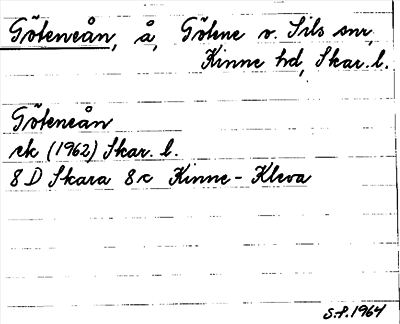 Göteneån, å, Götene v. Sils snr,
Kinne hd, Skar. l.
Göteneån
ek (1962) Skar. l.
8 D Skara 8c Kinne-Kleva
S.P. 1964